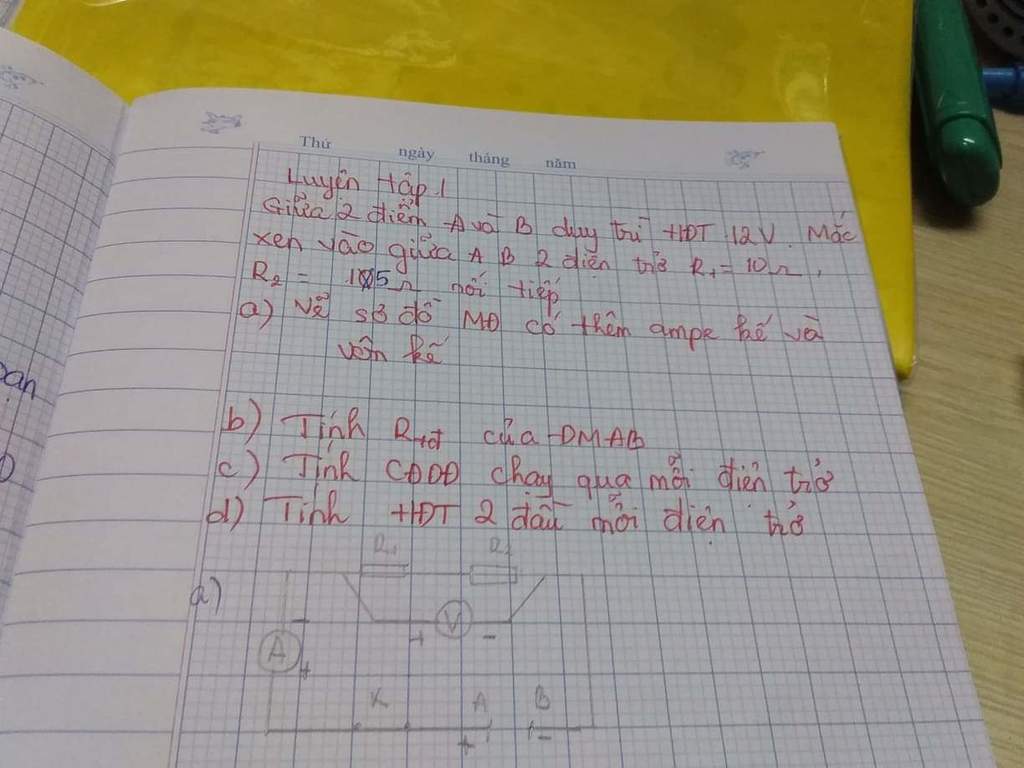 Thứ ngày tháng năm
Luyện tập 1
Giữa 2 điểm A và B duy trì HĐT 12V. Mắc
xen vào giữa A B 2 điện trở R₁ = 10Ω,
R₂ = 15Ω nối tiếp
a) Vẽ sơ đồ MĐ có thêm ampe kế và
vôn kế
b) Tính Rtđ của ĐMAB
c) Tính CĐDĐ chạy qua mỗi điện trở
d) Tính HĐT 2 đầu mỗi điện trở
R₁ R₂
a)
V
+ -
-
A
+
K A B
+ -